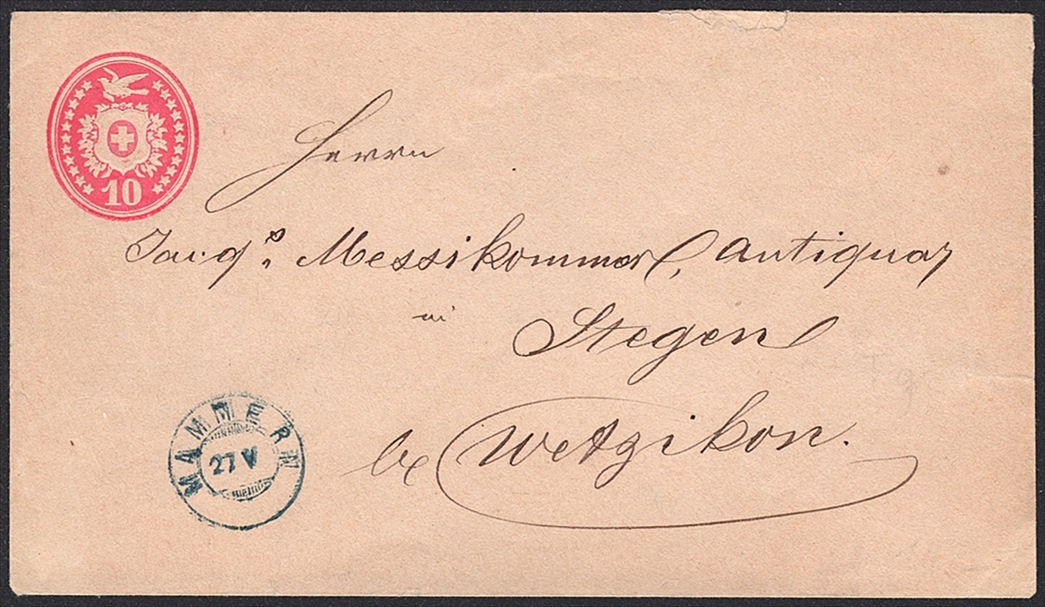 10
Herrn
Jacq.s Messikommer, Antiquar
in
Stegen
be Wetzikon.
MAMMERN
27 V